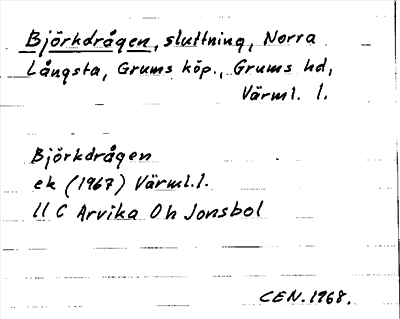 Björkdrågen, sluttning, Norra
Långsta, Grums köp., Grums hd,
Värml. l.
Björkdrågen
ek (1967) Värml.l.
11 C Arvika 0h Jonsbol
CEN. 1968.